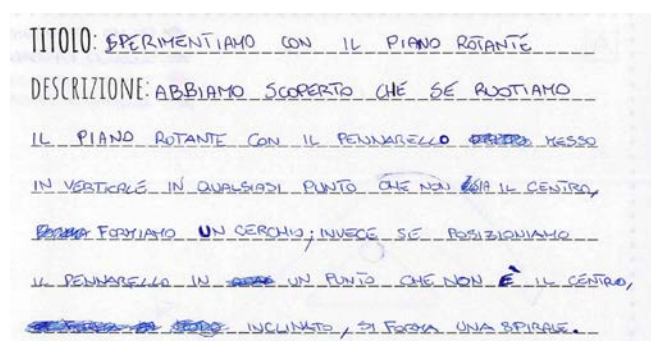 TITOLO: SPERIMENTIAMO CON IL PIANO ROTANTE
DESCRIZIONE: ABBIAMO SCOPERTO CHE SE RUOTIAMO
IL PIANO ROTANTE CON IL PENNARELLO MESSO
IN VERTICALE IN QUALSIASI PUNTO CHE NON SIA IL CENTRO,
FORMIAMO UN CERCHIO; INVECE SE POSIZIONIAMO
IL PENNARELLO IN UN PUNTO CHE NON È IL CENTRO,
INCLINATO, SI FORMA UNA SPIRALE.